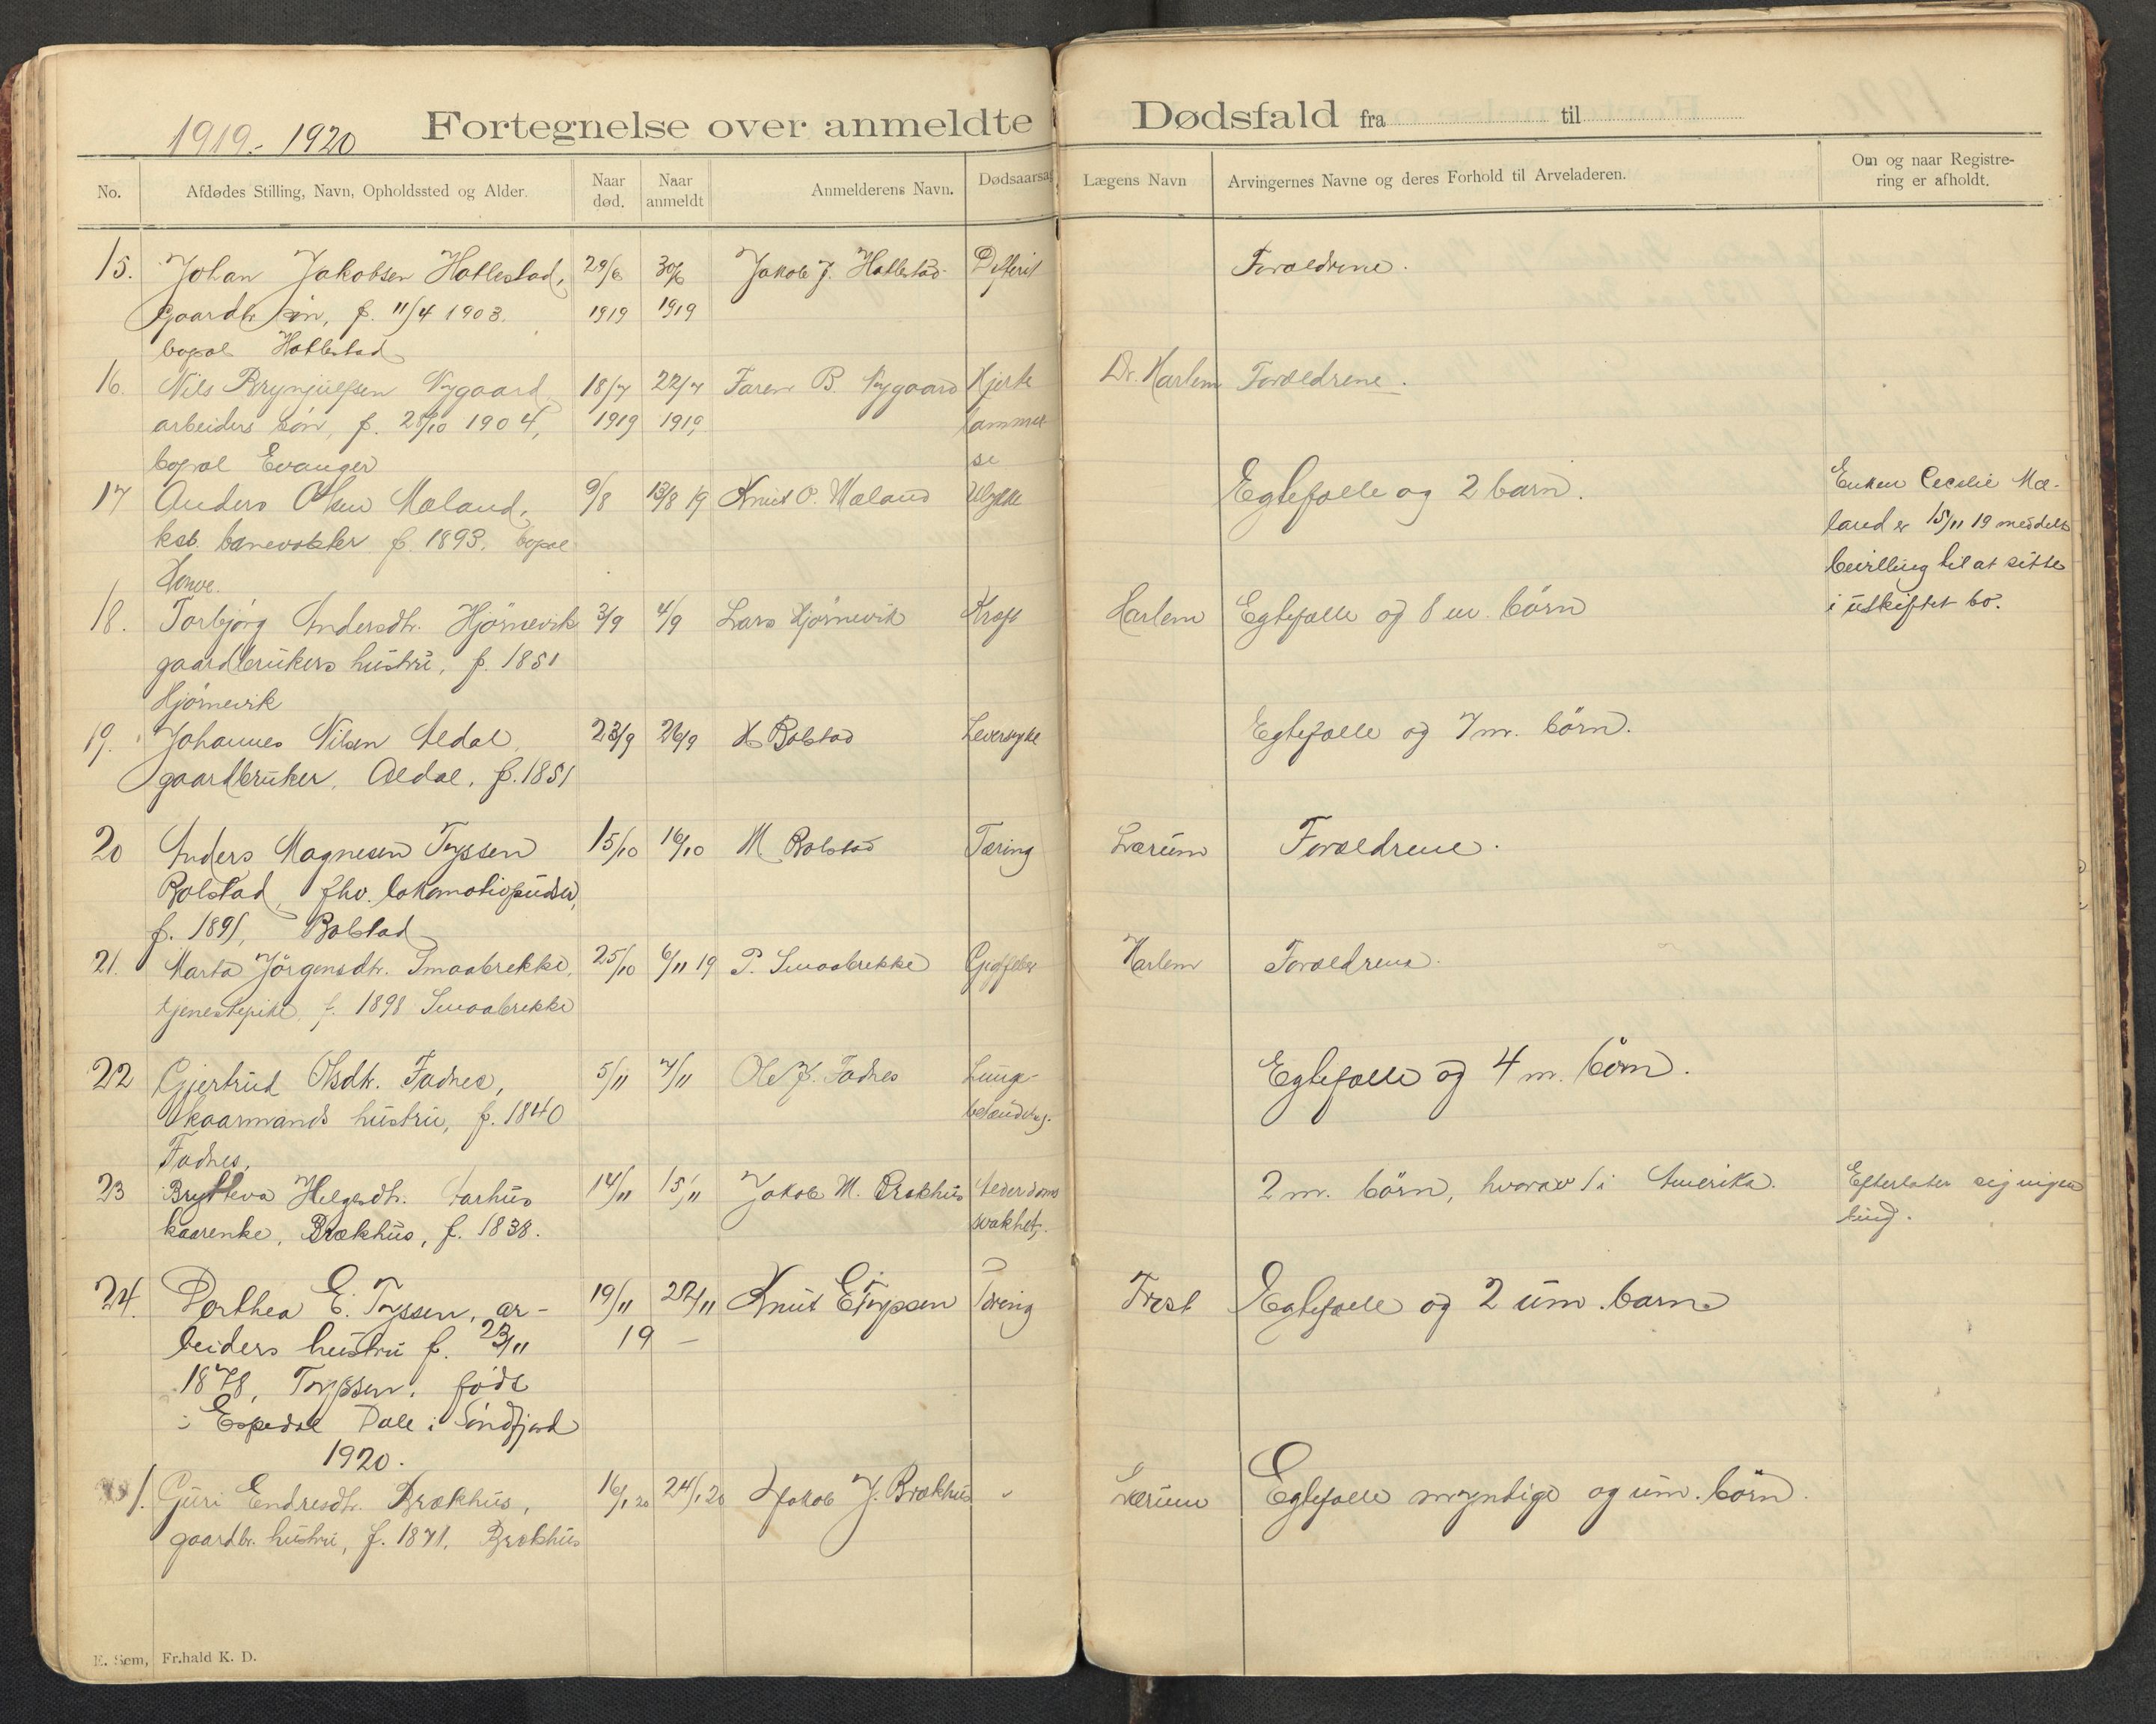 1919.- 1920 Fortegnelse over anmeldte Dødsfald fra til
No. Afdødes Stilling, Navn, Opholdssted og Alder. Naar død. Naar anmeldt Anmelderens Navn. Dødsaarsag Lægens Navn Arvingernes Navne og deres Forhold til Arveladeren. Om og naar Registrering er afholdt.
15. Johan Jakobsen Hatlestad, 29/6 30/6 Jakob J. Hatlestad Difterit Foræeldrene.
gaardbr søn, f. 11/4 1903. 1919 1919
bopæl Hatlestad
16. Nils Brynjulfsen Nygaard 18/7 22/7 Faren B. Nygaard Hjerte Dr. Harlem Forældrene.
arbeiders søn, f. 28/10 1904, 1919 1919 lammel
bopæl Evanger se
17 Anders Olsen Mæland, 9/8 13/8 19 Knut O. Mæland Ulykke Egtefælle og 2 barn. Enken Cecilie Mæ-
kst. banevokter f. 1893. bopæl land er 15/11 19 meddelt
Horve. bevilling til at sitte
18. Torbjørg Andersdtr. Hjørnevik 3/9 4/9 Lars Hjørnevik Kræft Harlem Egtefælle og 8 m. børn i uskiftet bo.
gaardbrukers hustru, f. 1851
Hjørnevik
19. Johannes Nilsen Aldal, 23/9 26/9 Bolstad Leversyke Egtefælle og 7 m. børn.
gaardbruker, Aldal, f. 1851
20 Anders Magnesen Tyssen 15/10 16/10 M Bolstad Tæring Lærum Forældrene.
Bolstad, fhv. lokomotivpudser,
f. 1891, Bolstad
21. Marta Jørgensdtr. Smaabrekke, 25/10 6/11 19 P. Smaabrekke Harlem Forældrene.
tjenestepike f. 1898 Smaabrekke
22 Gjertrud Olsdtr. Fadnes, 5/11 7/11 Ole J. Fadnes Lunge- Egtefælle og 4 m. børn.
kaarmands hustru, f. 1840 betændelse.
Fadnes.
23 Brytteva Helgesdtr. Aarhus 14/11 15/11 Jakob M. Brækhus Alderdoms 2 m. børn, hvorav 1 i Amerika. Efterlater sig ingen
kaarenke, Brækhus, f. 1838. svakhet. ting.
24. Dorthea E. Tyssen, ar- 19/11 22/11 Knut E Tyssen Tæring Frost Egtefælle og 2 um. barn.
beiders hustru f. 23/11 19 -
1878, Tyssen. født
i Espedal Dale i Søndfjord
1920.
1. Guri Endresdtr. Brækhus, 16/1 20 24/1 20 Jakob J. Brækhus " Lærum Egtefælle myndige og um. børn.
gaardbr. hustru, f. 1871, Brækhus
E. Sem, Fr.hald K. D.